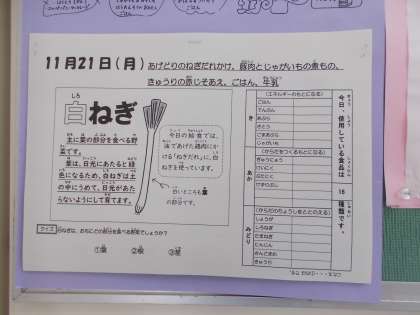 11月21日(月) あげどりのねぎだれかけ、豚肉とじゃがいもの煮もの、
きゅうりの赤じそあえ、ごはん、牛乳
しろ
白ねぎ
主に葉の部分を食べる野
菜です。
葉は、日光にあたると緑
色になるため、白ねぎは土
の中にうめて、日光があた
らないようにして育てます。
今日の給食では、
油であげた鶏肉にか
ける「ねぎだれ」に、白
ねぎを使っています。
白いところも葉
の部分です。
クイズ 白ねぎは、おもにどの部分を食べる野菜でしょうか?
①葉 ②根 ③茎
今日、使用している食品は 16 種類です。
き
(エネルギーのもとになる)
ごはん
でんぷん
あぶら
さとう
ごまあぶら
じゃがいも
あか
(からだをつくるもとになる)
ぎゅうにゅう
けいにく
ぶたにく
みどり
(からだのちょうしをととのえる)
しょうが
しろねぎ
たまねぎ
にんじん
きゅうり